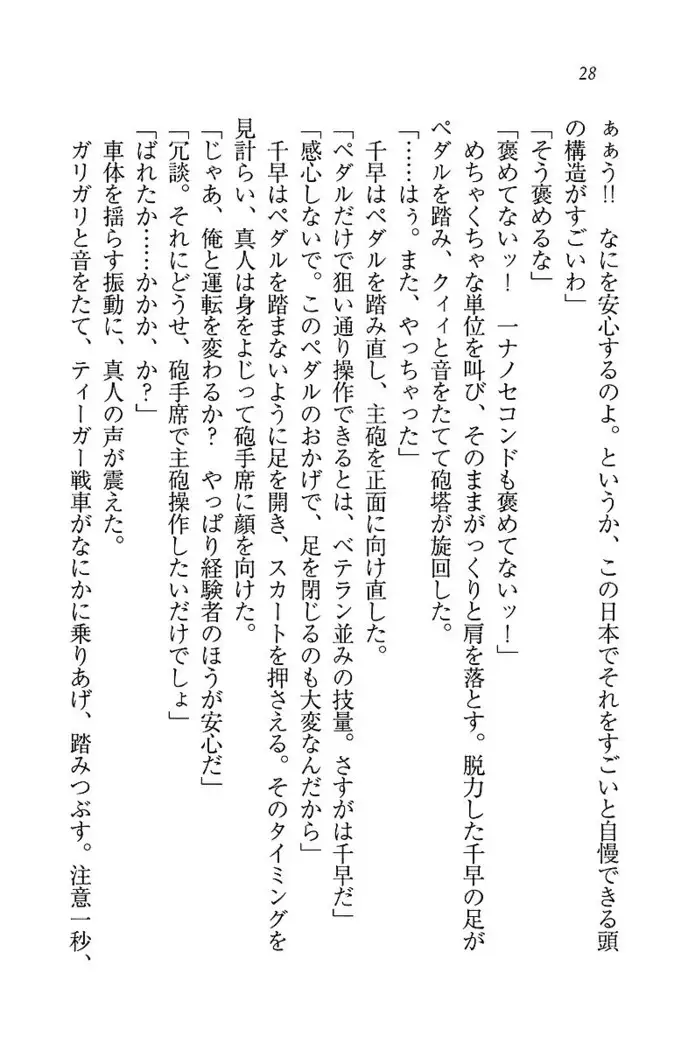 28
ぁぁう!! なにを安心するのよ。というか、この日本でそれをすごいと自慢できる頭
の構造がすごいわ」
「そう褒めるな」
「褒めてないッ! 一ナノセコンドも褒めてないッ!」
めちゃくちゃな単位を叫び、そのままがっくりと肩を落とす。脱力した千早の足が
ペダルを踏み、クィィと音をたてて砲塔が旋回した。
「……はぅ。また、やっちゃった」
千早はペダルを踏み直し、主砲を正面に向け直した。
「ペダルだけで狙い通り操作できるとは、ベテラン並みの技量。さすがは千早だ」
「感心しないで。このペダルのおかげで、足を閉じるのも大変なんだから」
千早はペダルを踏まないように足を開き、スカートを押さえる。そのタイミングを
見計らい、真人は身をよじって砲手席に顔を向けた。
「じゃあ、俺と運転を変わるか? やっぱり経験者のほうが安心だ」
「冗談。それにどうせ、砲手席で主砲操作したいだけでしょ」
「ばれたか……かかか、か?」
車体を揺らす振動に、真人の声が震えた。
ガリガリと音をたて、ティーガー戦車がなにかに乗りあげ、踏みつぶす。注意一秒、